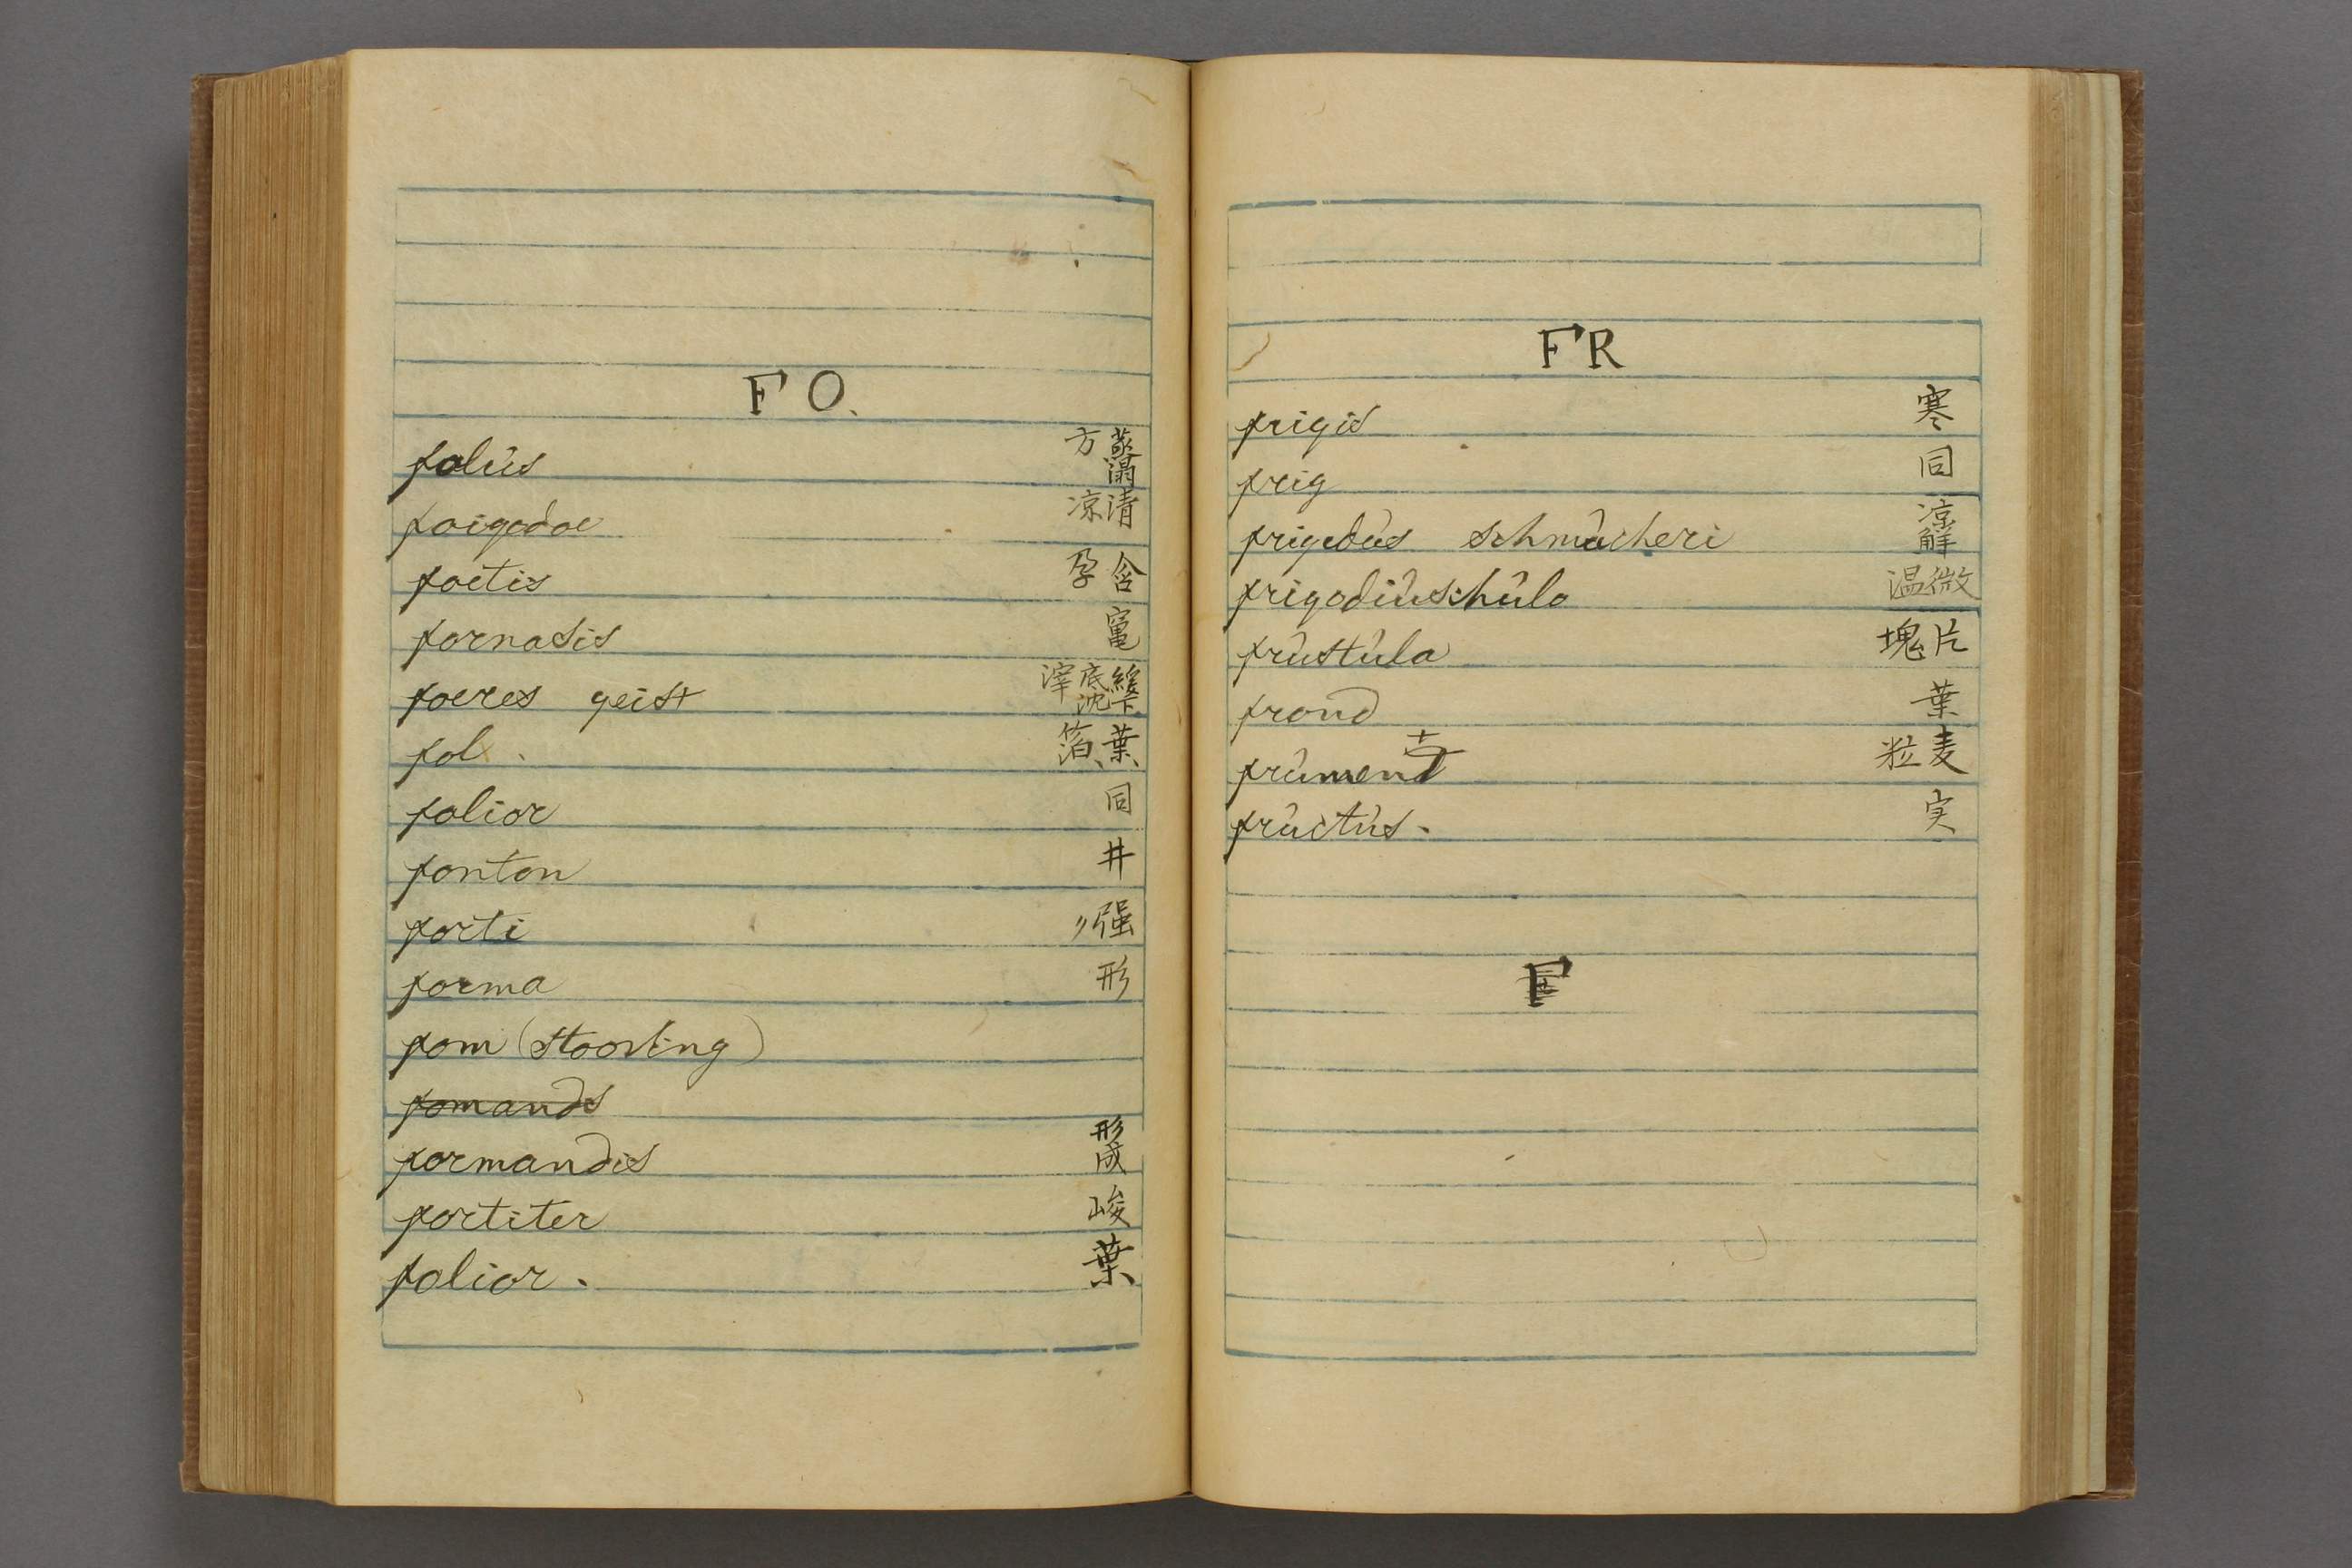 FO.
folùs 蒸溻方
foigodoe 清凉
foetis 含孕
fornasis 竃
foeres geist 緩下底沈滓
fol. 葉、箔、
folior 同
fonton 井
forti 强〃
forma 形
fom (stooving)
fomands
formandis 形成
fortiter 峻
folior. 葉
FR
frigis 寒
frig 同
frigedùs schmùcheri 凉解
frigodiùschùlo 微温
frùstùla 片塊
frond 葉
frùment 麦粒
frùctùs. 実
F